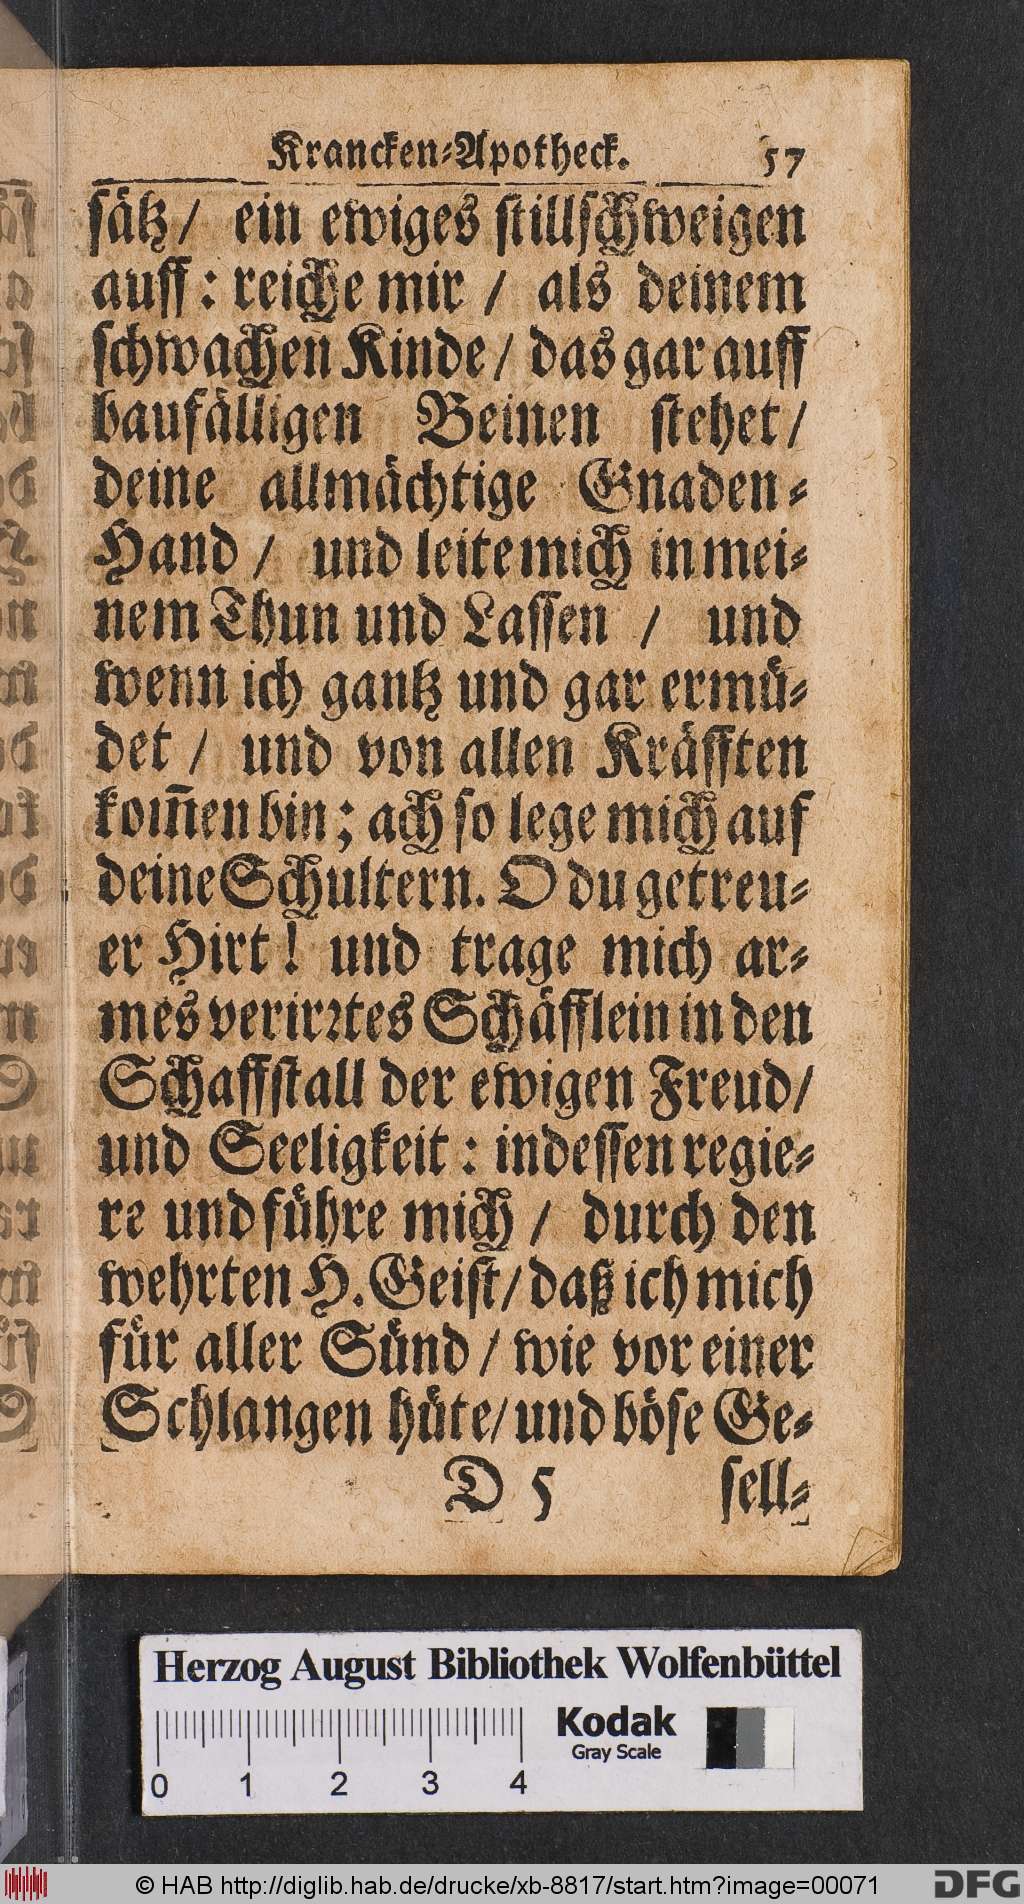 Krancken-Apotheck. 57
sätz / ein ewiges stillschweigen
auff : reiche mir / als deinem
schwachen Kinde / das gar auff
baufälligen Beinen stehet /
deine allmächtige Gnaden-
Hand / und leite mich in mei-
nem Thun und Lassen / und
wenn ich gantz und gar ermü-
det / und von allen Kräfften
kom̃en bin ; ach so lege mich auf
deine Schultern. O du getreu-
er Hirt ! und trage mich ar-
mes verirrtes Schäfflein in den
Schaffstall der ewigen Freud /
und Seeligkeit : indessen regie-
re und führe mich / durch den
wehrten H. Geist / daß ich mich
für aller Sünd / wie vor einer
Schlangen hüte / und böse Ge-
D 5 sell-
Herzog August Bibliothek Wolfenbüttel
Kodak
Gray Scale
0 1 2 3 4
© HAB http://diglib.hab.de/drucke/xb-8817/start.htm?image=00071
DFG